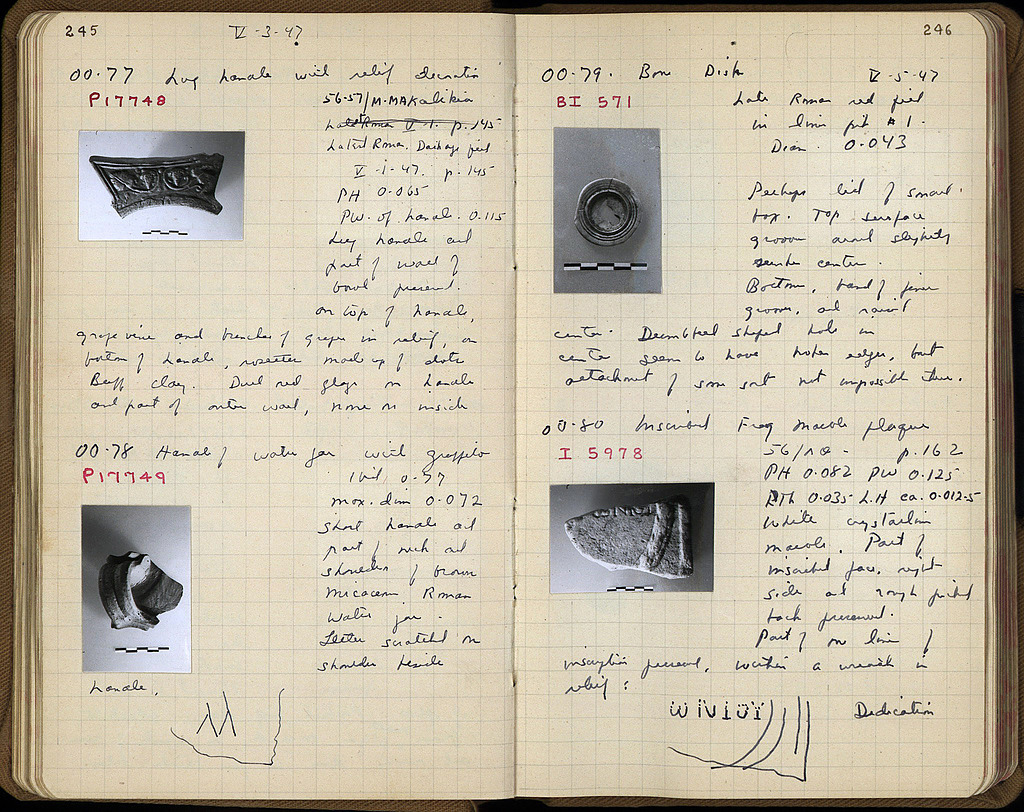 245
V-3-47
OO·77 Lug handle with relief decoration
P17748
56-57/M. MAKalikia
Late Roman V·1· p. 145
Latest Roman. Dark age fill
V-1-47. p. 145
PH 0.065
PW. of handle. 0.115
Lug handle and
part of wall of
bowl present.
On top of handle,
grape vine and bunches of grapes in relief, on
bottom of handle, rosettes made up of dots
Buff clay. Dull red glaze on handle
and part of outer wall, none on inside
OO·78 Handle of water jar with graffito
P17749
Ibid 0·77
max. dim 0.072
Short handle and
part of neck and
shoulder of brown
micaceous Roman
water jar.
Letter scratched on
shoulder beside
handle.
λλ
246
OO·79. Bone Disk V-5-47
BI 571
Late Roman red fill
in lime pit #1.
Diam. 0.043
Perhaps lid of small
box. Top surface
groove around slightly
sunken center.
Bottom, band of finer
grooves, and raised
center. Dumbbell shaped hole in
center seems to have broken edges, but
attachment of some sort not impossible there.
OO·80 Inscribed Frag marble plaque
I 5978
56/ p. 162
PH 0.082 PW 0.125
PTh 0.035 L.H ca. 0.012-5
White crystalline
marble. Part of
inscribed face, right
side and rough picked
back present.
Part of one line of
inscription present, within a wreath in
relief:
Dedication